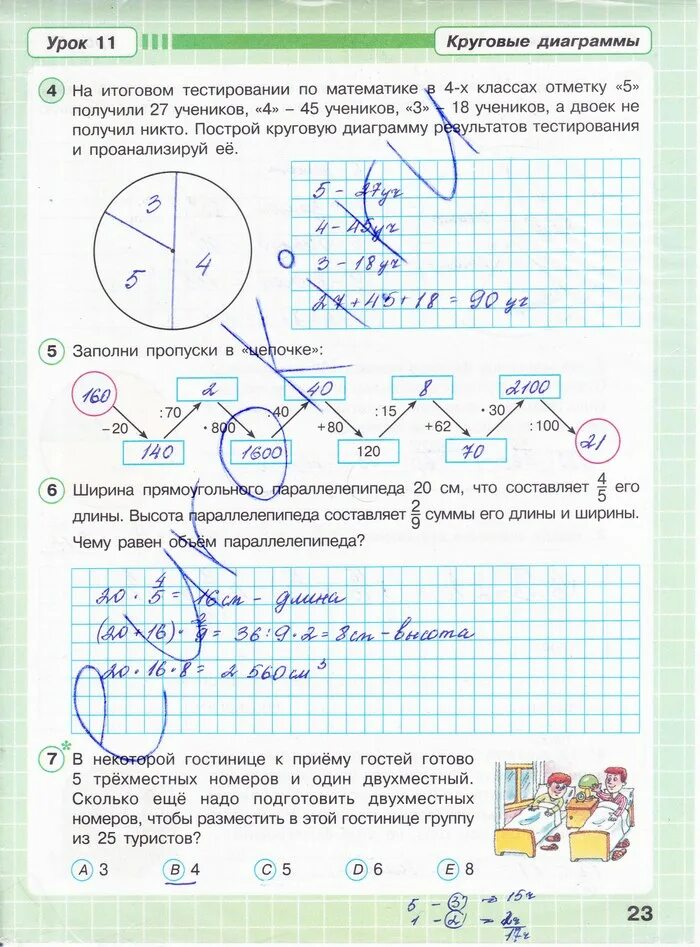 Урок 11
Круговые диаграммы
4 На итоговом тестировании по математике в 4-х классах отметку «5»
получили 27 учеников, «4» – 45 учеников, «3» – 18 учеников, а двоек не
получил никто. Построй круговую диаграмму результатов тестирования
и проанализируй её.
3
5
4
5 – 27уч
4 – 45уч
3 – 18уч
27 + 45 + 18 = 90 уч
5 Заполни пропуски в «цепочке»:
160 2 40 8 2100
–20 :70 ·800 :40 +80 :15 +62 ·30 :100
140 1600 120 70 21
6 Ширина прямоугольного параллелепипеда 20 см, что составляет 4/5 его
длины. Высота параллелепипеда составляет 2/9 суммы его длины и ширины.
Чему равен объём параллелепипеда?
20 · 4/5 = 16см – длина
(20 + 16) · 2/9 = 36 : 9 · 2 = 8см – высота
20 · 16 · 8 = 2 560 см³
7* В некоторой гостинице к приёму гостей готово
5 трёхместных номеров и один двухместный.
Сколько ещё надо подготовить двухместных
номеров, чтобы разместить в этой гостинице группу
из 25 туристов?
A 3 B 4 C 5 D 6 E 8
5 – 3 = 15ч
1 – 2 = 2ч
17ч
23